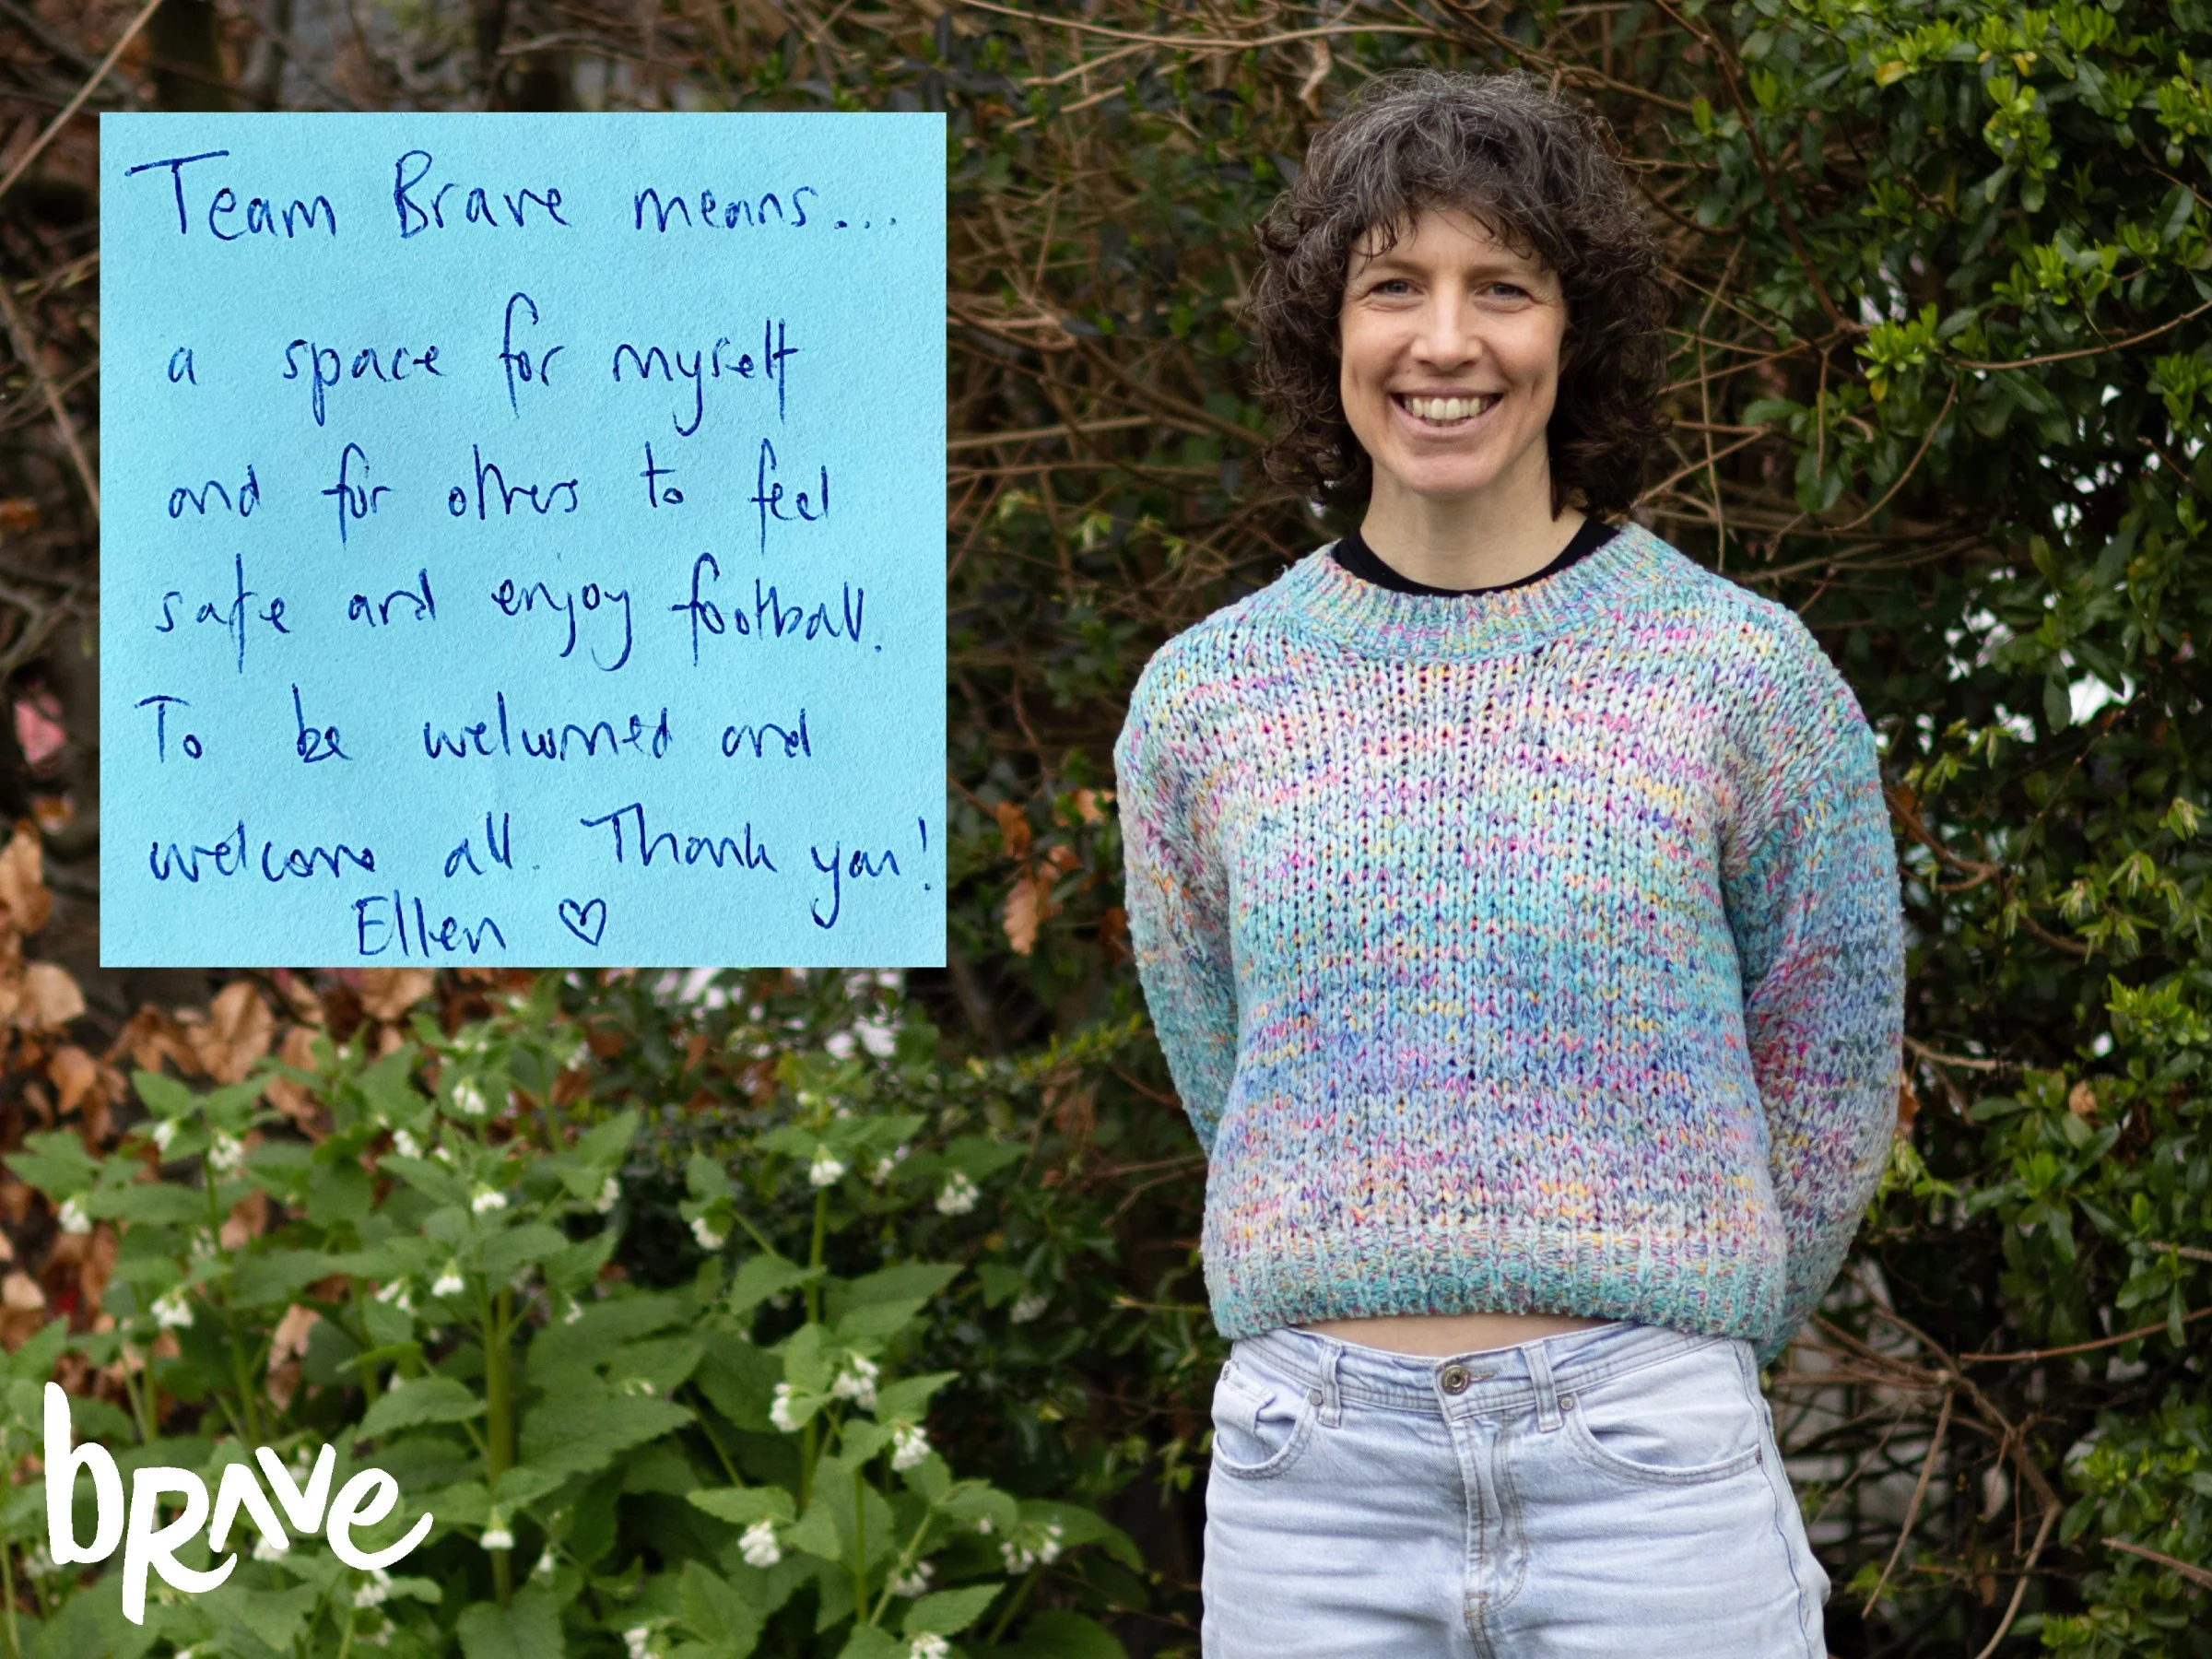 Team Brave means...
a space for myself
and for others to feel
safe and enjoy football.
To be welcomed and
welcome all. Thank you!
Ellen ♡
bRAve